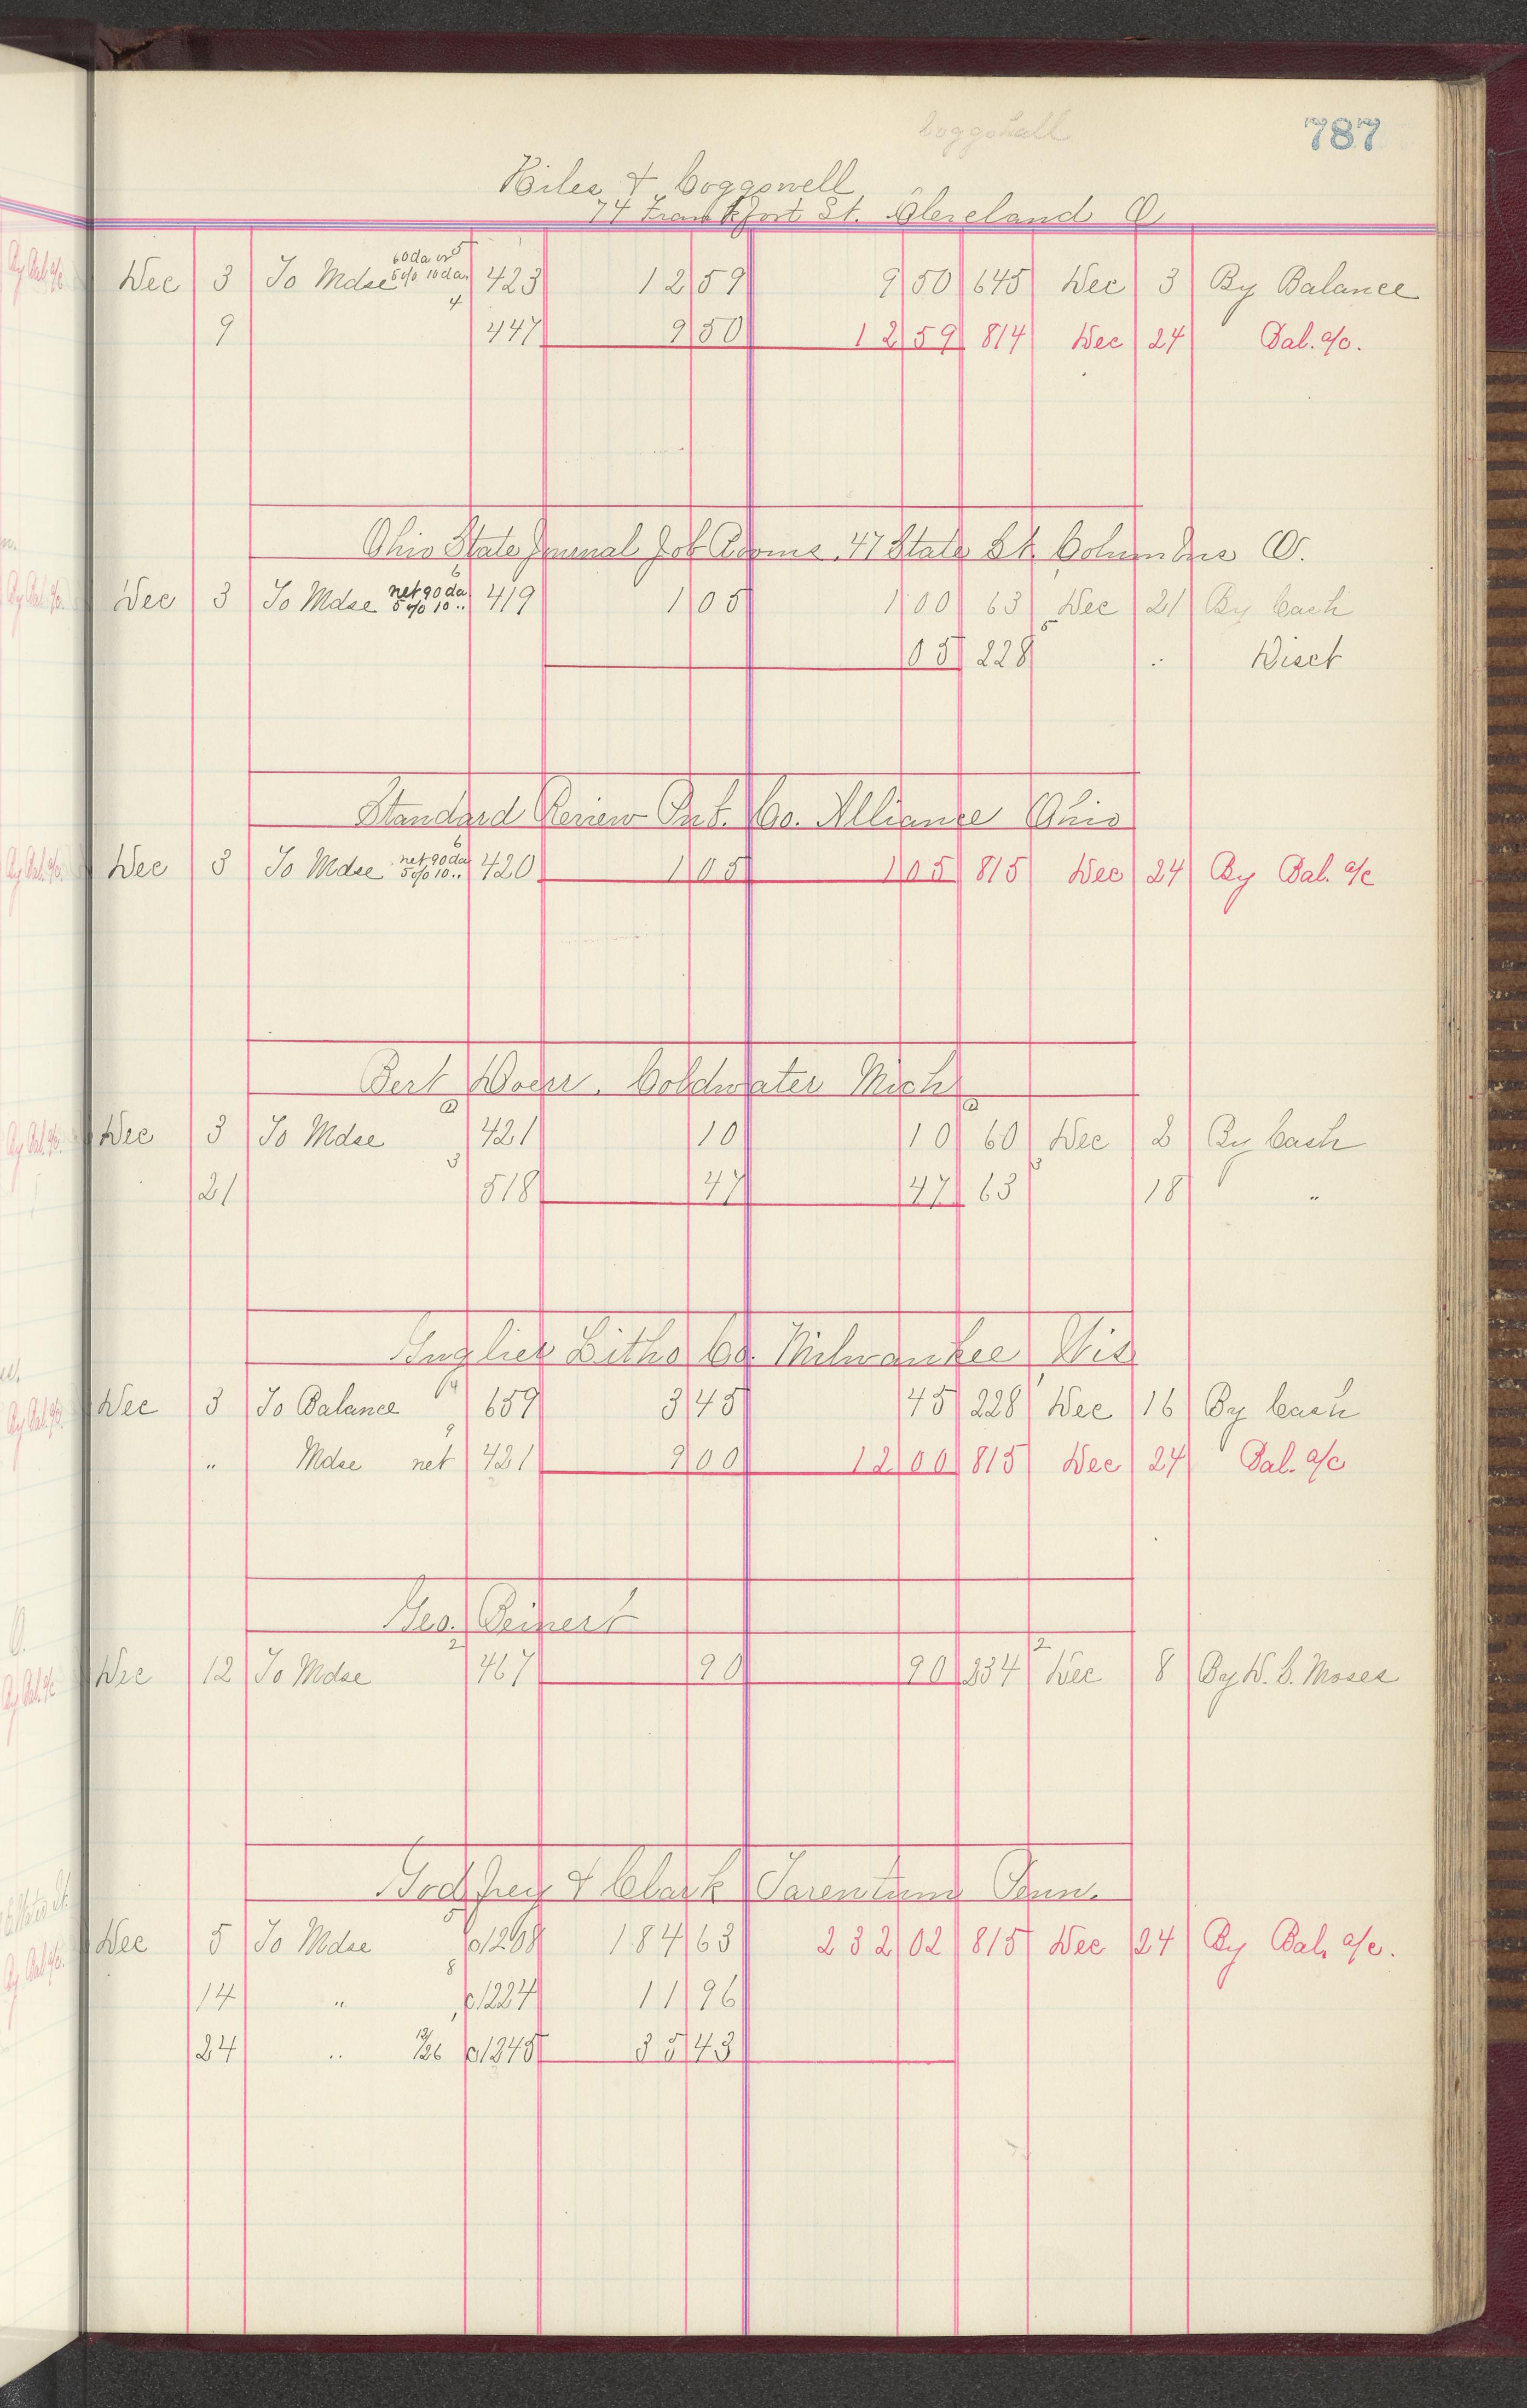 787
Coggshall
Hiles & Coggswell
74 Frankfort St. Cleveland O
Dec 3 To Mdse 60 da or 5% 10 da. 5 423 12 59 9 50 645 Dec 3 By Balance
9 4 447 9 50 12 59 814 Dec 24 Bal. a/c.
Ohio State Journal Job Rooms. 47 State St. Columbus O.
Dec 3 To Mdse net 90 da 5% 10 .. 6 419 1 05 1 00 63 Dec 21 By Cash
05 228 5 .. Disct
Standard Review Pub. Co. Alliance Ohio
Dec 3 To Mdse net 90 da 5% 10 .. 6 420 1 05 1 05 815 Dec 24 By Bal. a/c
Bert Doerr. Coldwater Mich
Dec 3 To Mdse 421 10 10 60 Dec 2 By Cash
21 3 518 47 47 63 3 18 "
Gugler Litho Co. Milwaukee Wis
Dec 3 To Balance 14 659 3 45 45 228 1 Dec 16 By Cash
" Mdse net 9 421 9 00 12 00 815 Dec 24 Bal. a/c
Geo. Reinert
Dec 12 To Mdse 2 467 90 90 234 2 Dec 8 By W. B. Moses
Godfrey & Clark Tarentum Penn.
Dec 5 To Mdse 5 c1208 184 63 232 02 815 Dec 24 By Bal. a/c.
14 " 8 c1224 11 96
24 .. 12/26 c1245 35 43